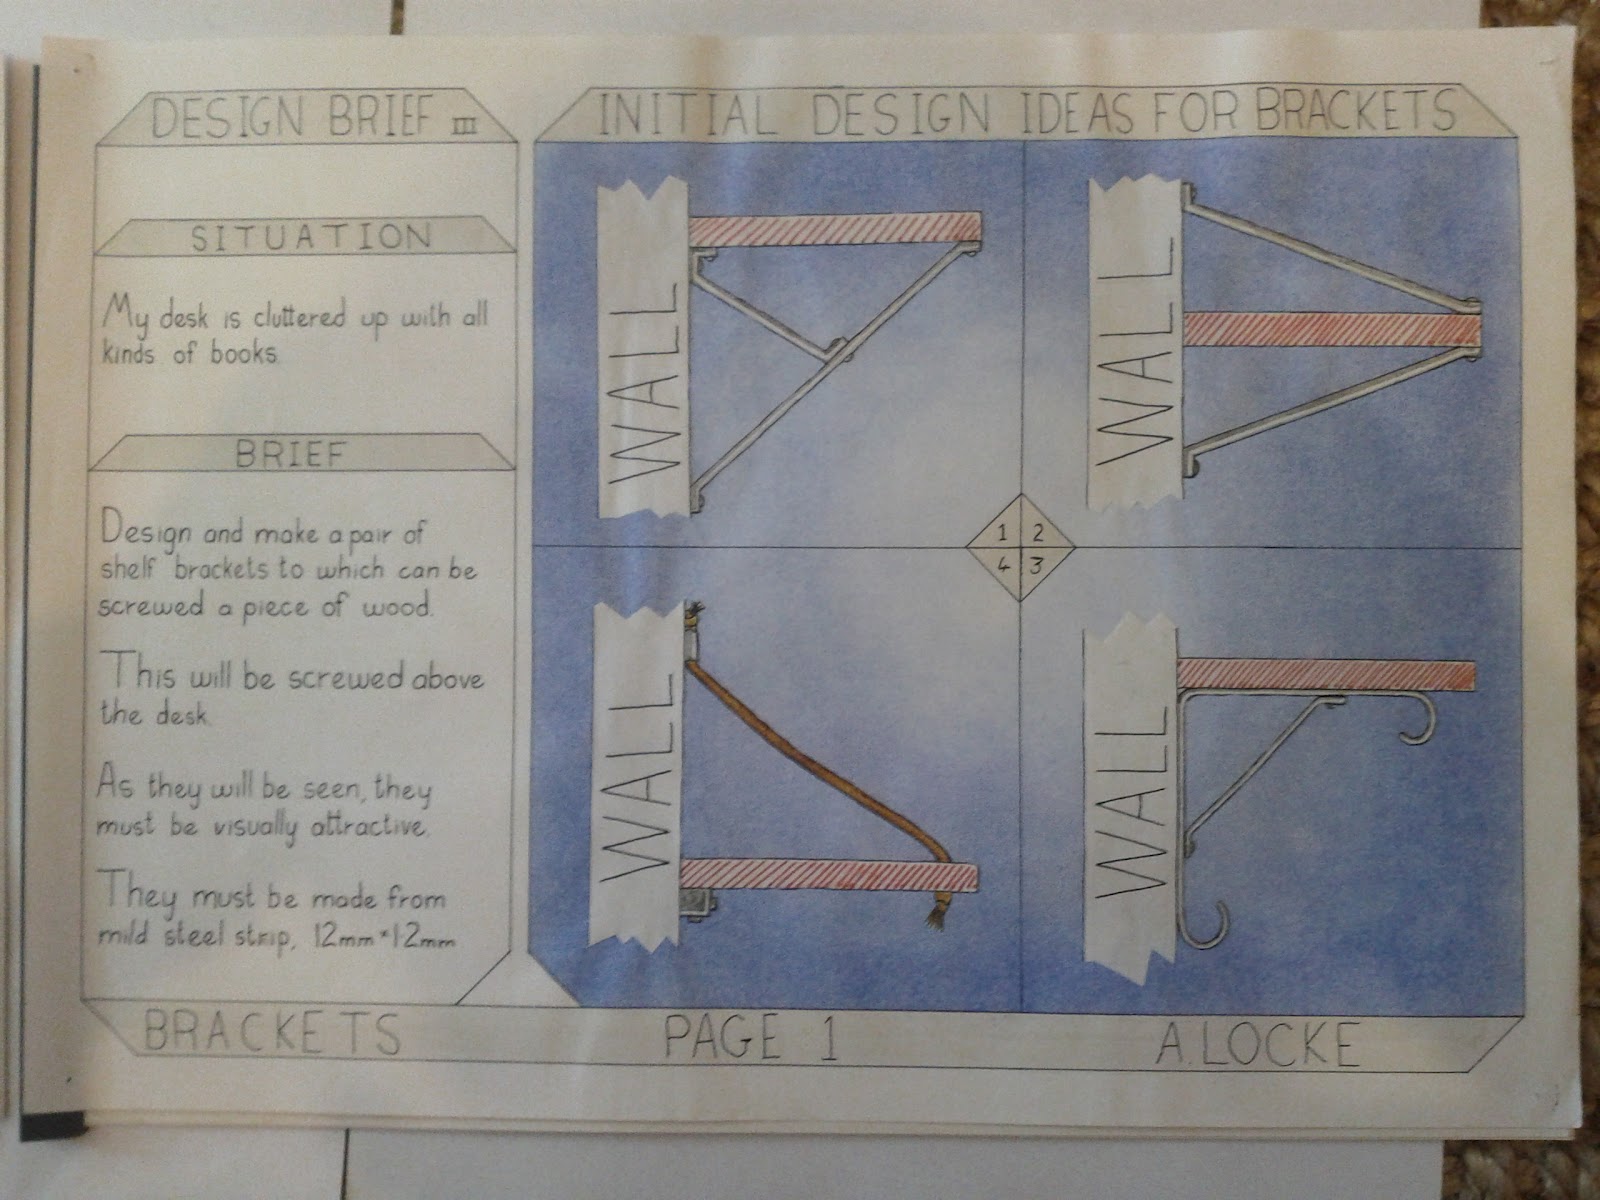 DESIGN BRIEF III
SITUATION
My desk is cluttered up with all
kinds of books.
BRIEF
Design and make a pair of
shelf brackets to which can be
screwed a piece of wood.
This will be screwed above
the desk.
As they will be seen, they
must be visually attractive.
They must be made from
mild steel strip, 12mm × 1·2mm
INITIAL DESIGN IDEAS FOR BRACKETS
WALL
WALL
1 2
4 3
WALL
WALL
BRACKETS PAGE 1 A.LOCKE